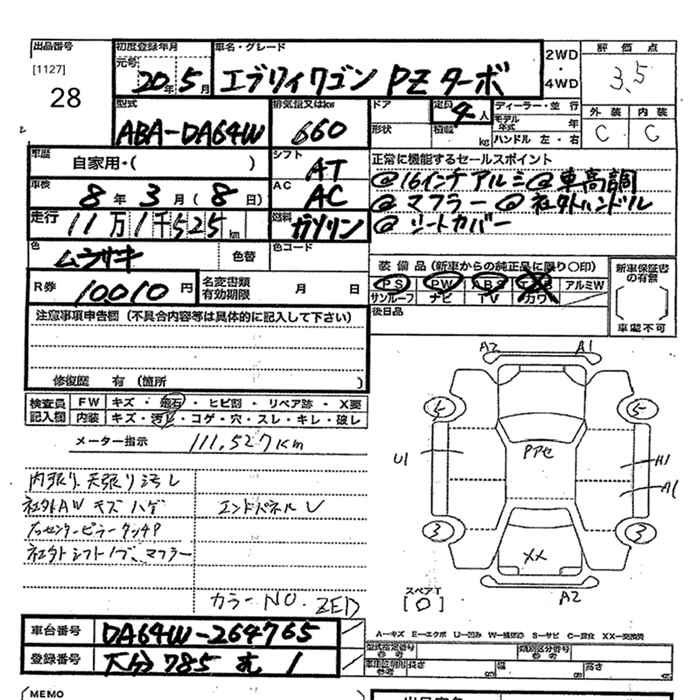 出品番号 初度登録年月 車名・グレード 評価点
[1127] 元号 2WD
28 20年 5月 エブリィワゴン PZターボ ・ 3.5
4WD
型式 排気量又はkw ドア 定員 4人 ディーラー・並行 外装 内装
ABA-DA64W 660 形状 積載 kg モデル年式 年 C C
ハンドル 左・右
車歴 自家用・( ) シフト AT 正常に機能するセールスポイント
車検 8年 3月 (8日) AC AC @16インチアルミ@車高調
走行 11万1千525km 燃料 ガソリン @マフラー@社外ハンドル
@シートカバー
色 ムラサキ 色替 色コード
装備品(新車からの純正品に限り○印) 新車保証書の有無
R券 10010円 名変書類有効期限 月 日 PS PW ABS アルミW
サンルーフ ナビ TV カワ
後日品 車載不可
注意事項申告欄(不具合内容等は具体的に記入して下さい)
修復歴 有(箇所 )
検査員 FW キズ・飛石・ヒビ割・リペア跡・X要
記入欄 内装 キズ・汚レ・コゲ・穴・スレ・キレ・破レ
メーター指示 111,527Km
A2 A1
U1 Pアセ H1
A1
3 3
XX
A2
内張り、天張り汚レ
社外AW キズ ハゲ エンドパネル U
社外シフトノブ、マフラー
カラーNO. ZED
スペアT
[0]
車台番号 DA64W-264765
登録番号 大分 785 む 1
A-キズ E-エクボ U-凹み W-補修跡 S-サビ C-腐食 XX-交換済
型式指定番号 類別区分番号
長さ 幅 高さ
(MEMO